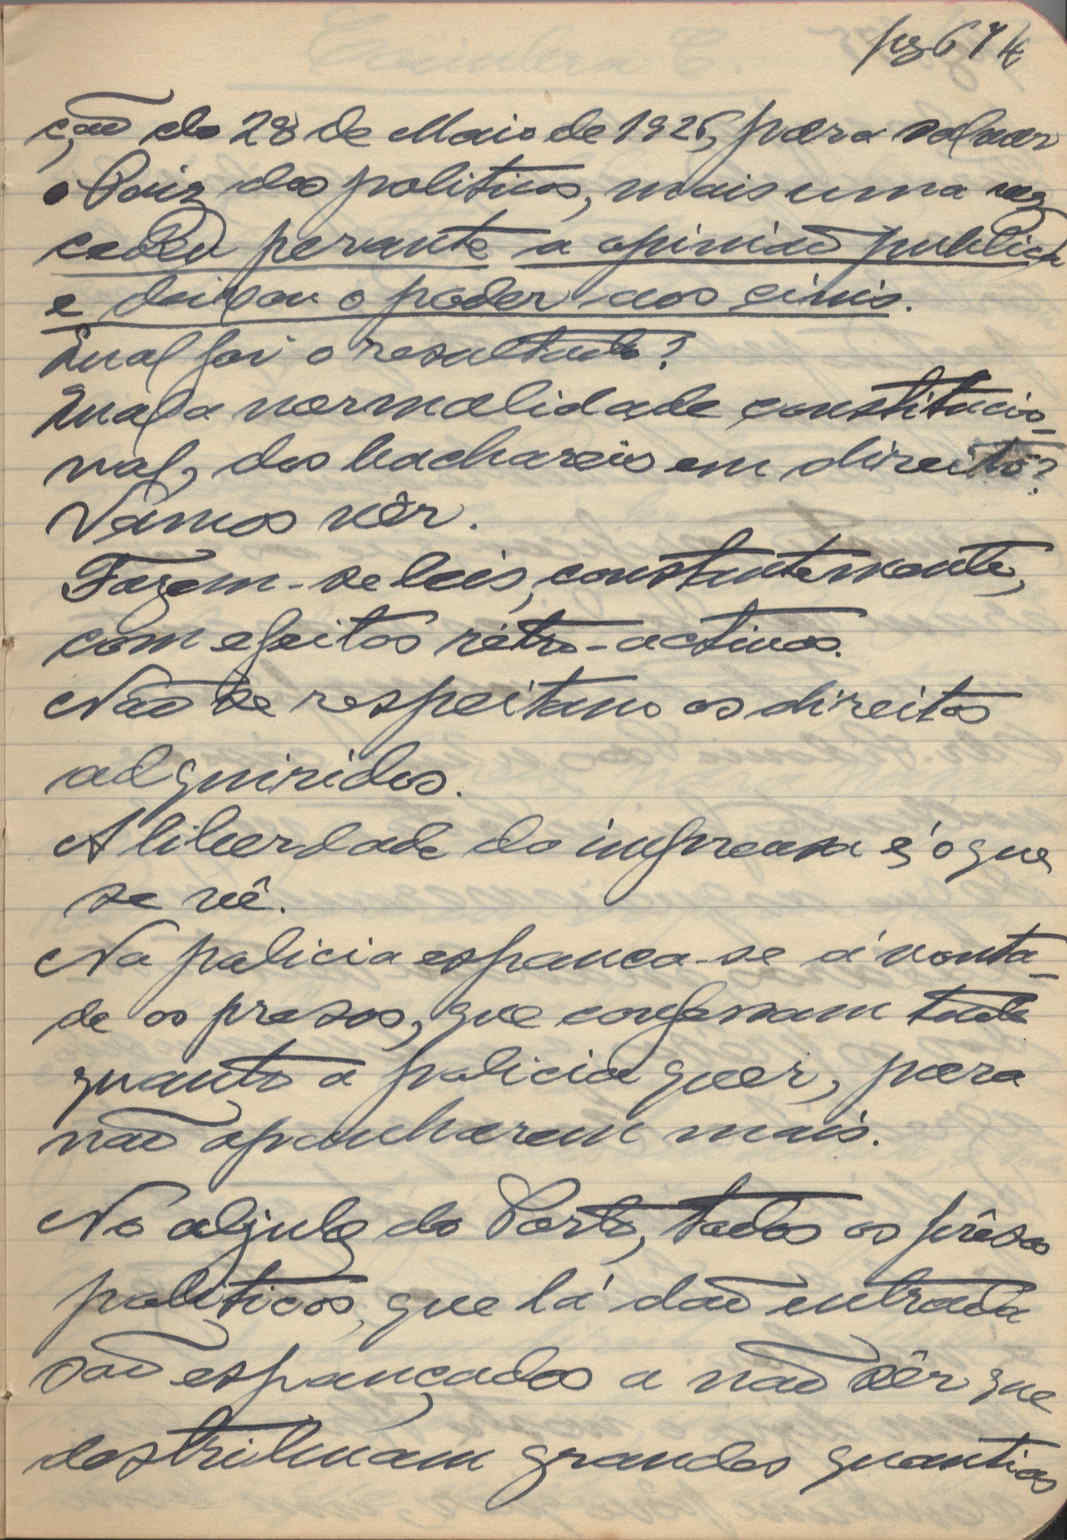 pg 674
ção do 28 de Maio de 1926, para salvar
o Paiz dos politicos, mais uma vez
cedeu perante a opinião publica
e deixou o poder aos civis.
Qual foi o resultado?
Qual a normalidade constitucio-
nal, dos bachareis em direito?
Vâmos vêr.
Fazem-se leis, constantemente,
com efeitos rétro-activos.
Não se respeitam os direitos
adquiridos.
A liberdade da imprensa é, o que
se vê.
Na policia espanca-se á vonta-
de os presos, que confessam tudo
quanto a policia quer, para
não apanharem mais.
No aljube do Porto, todos os prêsos
politicos, que lá dão entrada
são espançados a não sêr que
destribuam grandes quantias